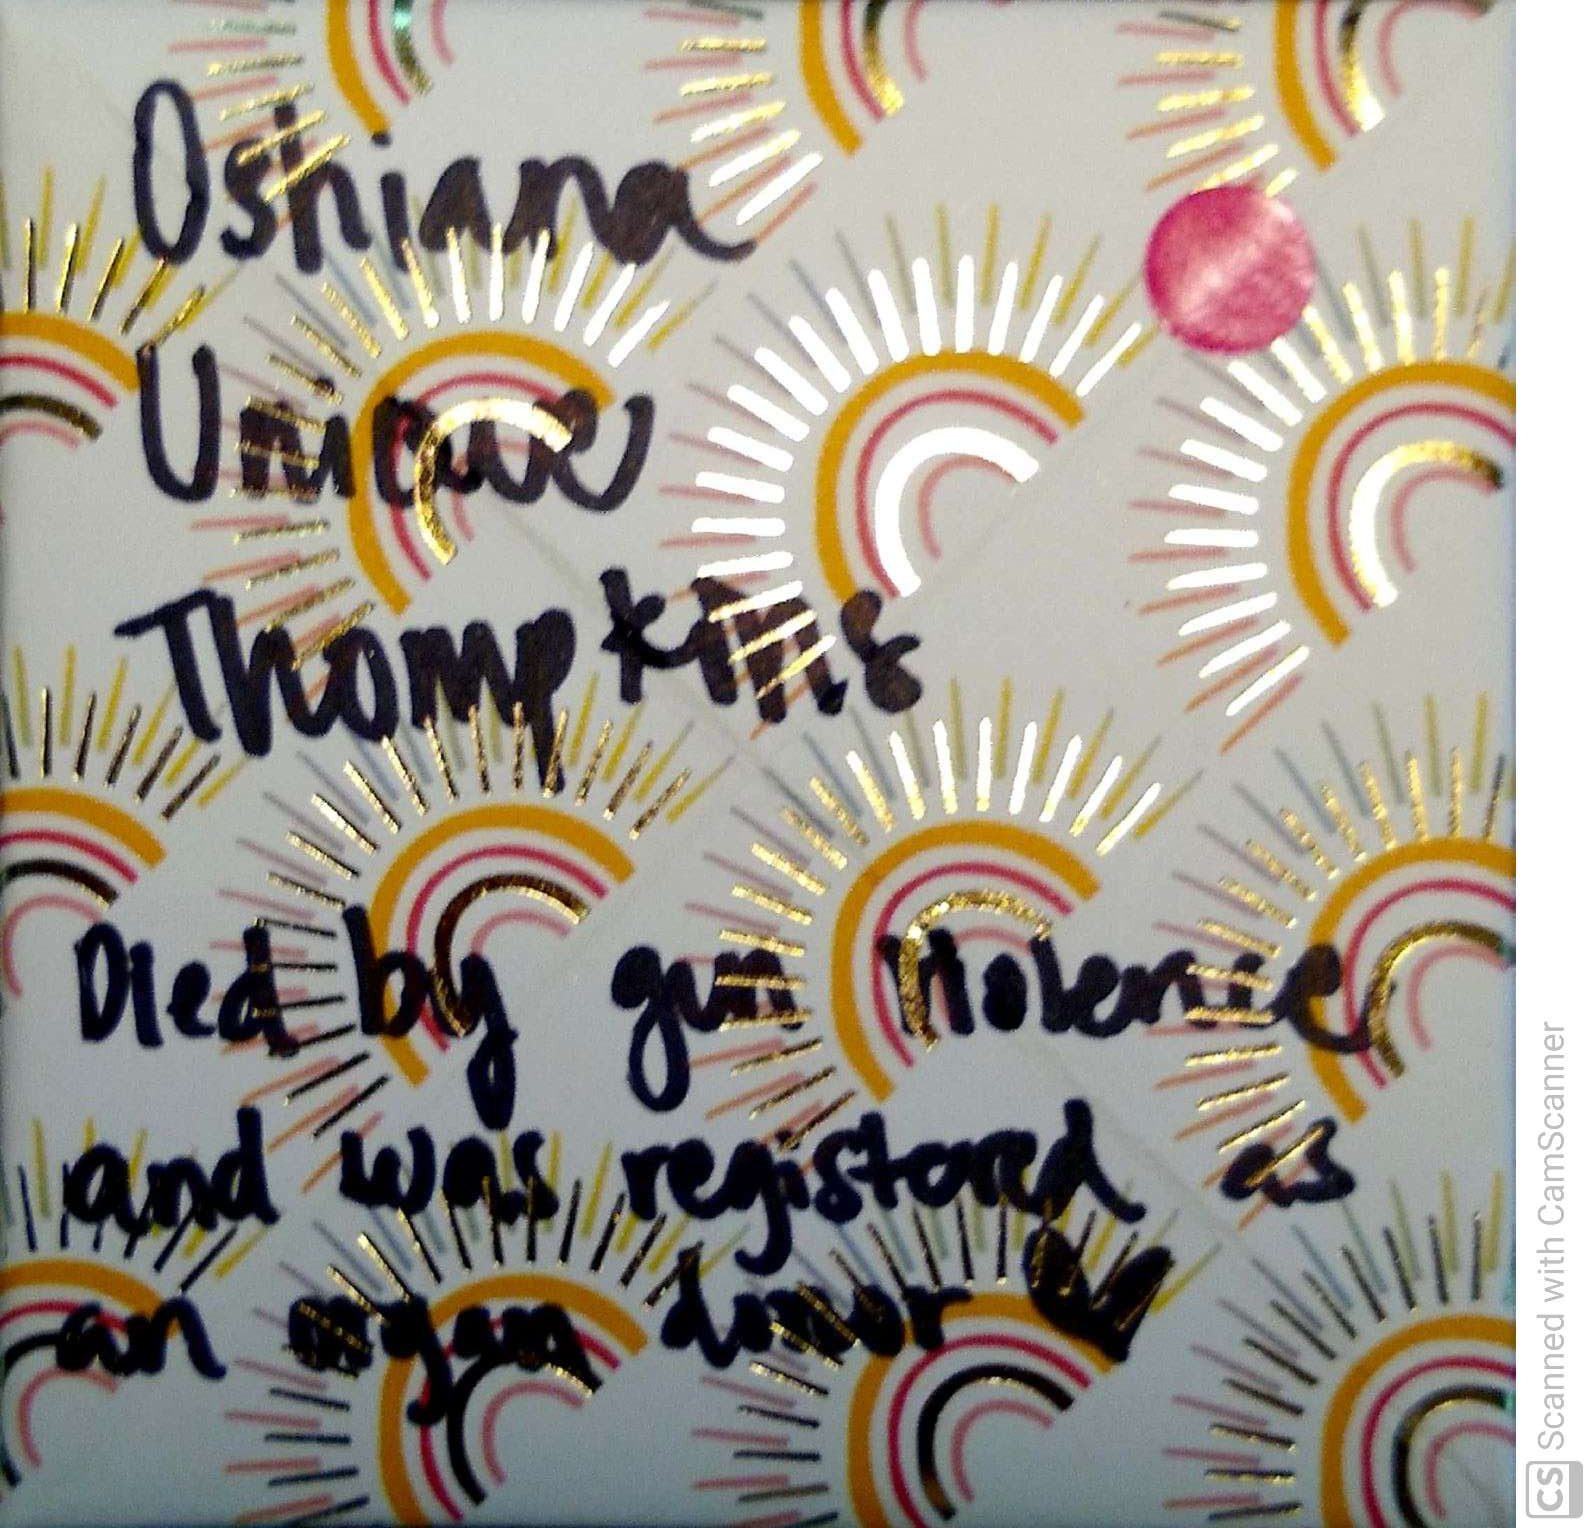 Oshiana
Unique
Thompkins
Died by gun violence
and was registered as
an organ donor
CS Scanned with CamScanner